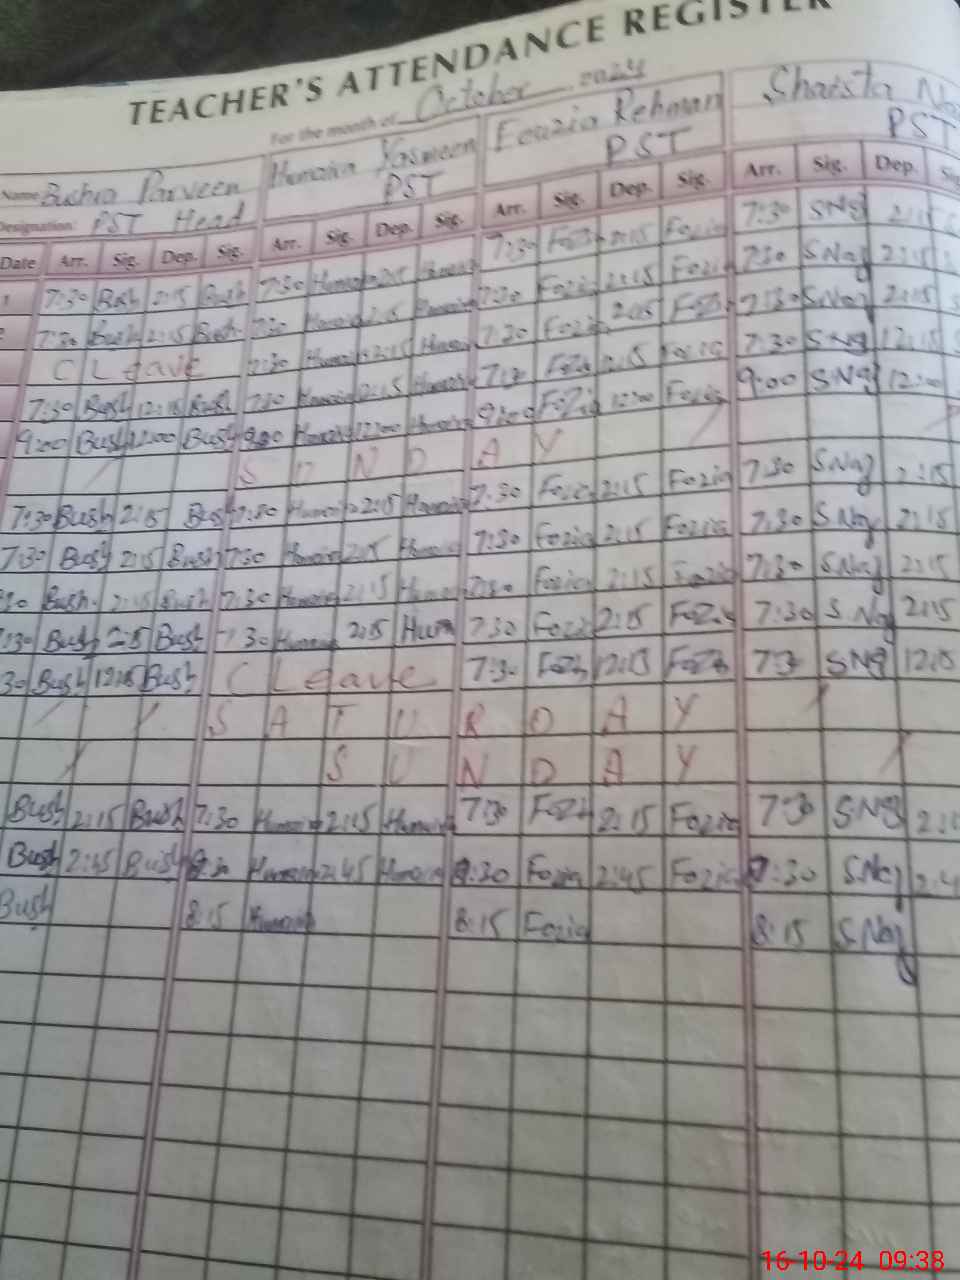 TEACHER'S ATTENDANCE REGISTER
For the month of October 2024
Name Bushra Parveen Humaira Yasmeen Fouzia Rehman Shaista
Designation: PST Head PST PST PST
Date Arr. Sig. Dep. Sig. Arr. Sig. Dep. Sig. Arr. Sig. Dep. Sig. Arr. Sig. Dep. Sig
1 7:30 Bush 2:15 Bush 7:30 2:15 7:30 Fozia 2:15 Fozia 7:30 SNaz 2:15
2 7:30 Bush 2:15 Bush 7:30 2:15 7:30 Fozia 2:15 Fozia 7:30 SNaz 2:15
C Leave 7:30 Humaira 2:15 7:30 Fozia 2:15 Foz 7:30 SNaz 2:15
7:30 Bush 12:15 Bush 7:30 12:15 7:30 Fozia 12:15 Fozia 7:30 SNaz 12:15
9:00 Bush 12:00 Bush 9:00 12:00 9:00 Fozi 12:00 Fozia 9:00 SNaz 12:00
S U N D A Y
7:30 Bush 2:15 Bush 7:30 2:15 7:30 Fozia 2:15 Fozia 7:30 SNaz 2:15
7:30 Bush 2:15 Bush 7:30 2:15 7:30 Fozia 2:15 Fozia 7:30 S Naz 2:15
30 Bush 2:15 Bush 7:30 Humaira 2:15 7:30 Fozia 2:15 Fozia 7:30 S.Naz 2:15
:30 Bush 2:15 Bush 7:30 2:15 Hum 7:30 Fozia 2:15 Fozia 7:30 S.Naz 2:15
30 Bush 12:15 Bush C Leave 7:30 Fozia 12:15 Fozia 7:3 SNaz 12:15
S A T U R D A Y
S U N D A Y
Bush 2:15 Bush 7:30 Humaira 2:15 Humaira 7:30 Fozia 2:15 Fozia 7:30 SNaz
Bush 2:45 Bush 8:30 Humaira 2:45 Humaira 8:30 Fozia 2:45 Fozia :30 S.Naz 2:4
Bush 8:15 Humaira 8:15 Fozia 8:15 S.Naz
16-10-24 09:38